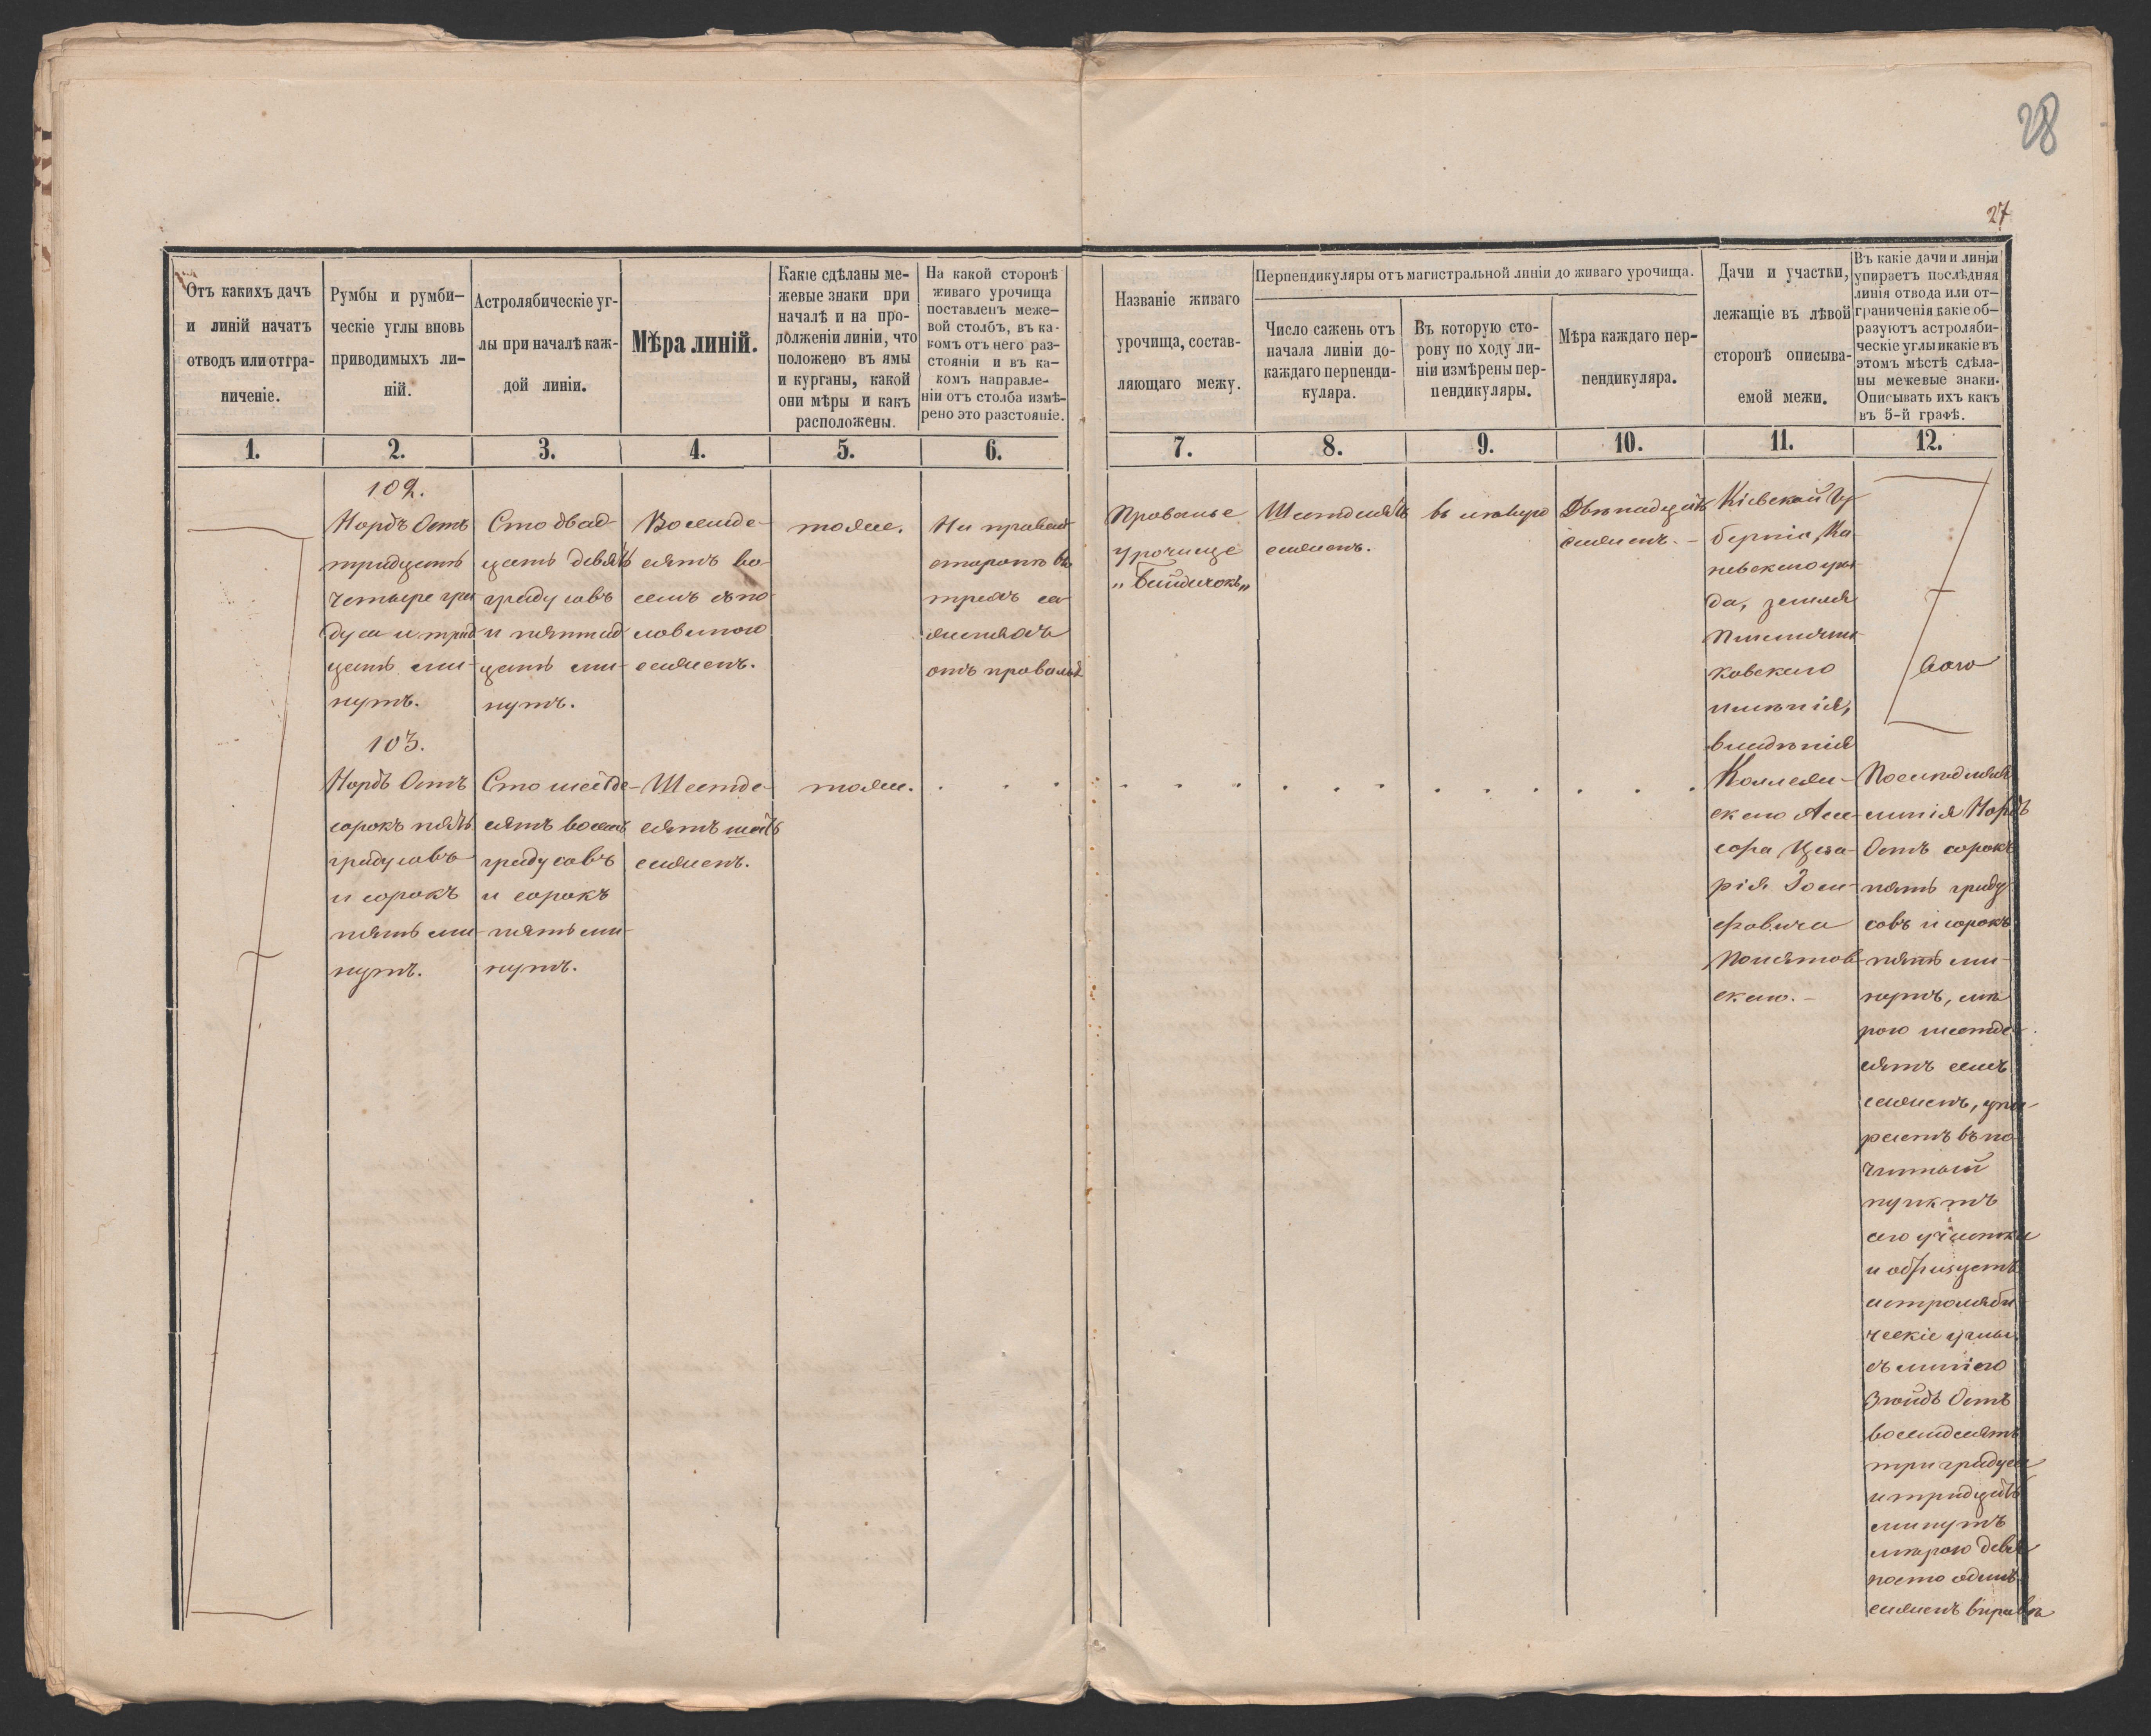 28
27
Отъ какихъ дачъ
и линій начатъ
отводъ или отгра-
ниченіе.
Румбы и румби-
ческіе углы вновь
приводимыхъ ли-
ній.
Астролябическіе уг-
лы при началѣ каж-
дой линіи.
Мѣра линій.
Какіе сдѣланы ме-
жевые знаки при
началѣ и на про-
долженіи линіи, что
положено въ ямы
и курганы, какой
они мѣры и какъ
расположены.
На какой сторонѣ
живаго урочища
поставленъ меже-
вой столбъ, въ ка-
комъ отъ него раз-
стояніи и въ ка-
комъ направле-
ніи отъ столба измѣ-
рено это разстояніе.
Названіе живаго
урочища, состав-
ляющаго межу.
Перпендикуляры отъ магистральной линіи до живаго урочища.
Число сажень отъ
начала линіи до-
каждаго перпенди-
куляра.
Въ которую сто-
рону по ходу ли-
ніи измѣрены пер-
пендикуляры.
Мѣра каждаго пер-
пендикуляра.
Дачи и участки,
лежащіе въ лѣвой
сторонѣ описыва-
емой межи.
Въ какіе дачи и линіи
упираетъ послѣдняя
линія отвода или от-
граниченія какіе об-
разуютъ астроляби-
ческіе углы и какіе въ
этомъ мѣстѣ сдѣла-
ны межевые знаки.
Описывать ихъ какъ
въ 5-й графѣ.
1.
2.
3.
4.
5.
6.
7.
8.
9.
10.
11.
12.
102.
Нордъ Остъ
тридцать
четыре гра
дуса и трид
цать ми-
нутъ.
Сто двад-
цать девять
градусовъ
и пятнад
цать ми-
нутъ.
Восемьде-
сятъ во-
семь съ по-
ловиною
сажень.
тоже.
На правой
сторонѣ въ
трехъ са
женяхъ
отъ провалья
Провалье
урочище
Шестдесятъ
сажень.
въ лѣвую
Двѣнадцать
сажень. -
Кіевской Гу-
берніи, Ка-
невскаго уѣз-
да, земля
ковскаго
имѣнія,
владѣнія
Коллежи-
скаго Асе-
сора Цеза-
рія Іоси-
фовича
Понятов-
скаго. -
103.
Нордъ Остъ
сорокъ пять
градусовъ
и сорокъ
пять ми-
нутъ.
Сто шестьде-
сятъ восемь
градусовъ
и сорокъ
пять ми-
нутъ.
Шестде-
сятъ шесть
сажень.
тоже.
Последняя
линія Нордъ
Остъ сорокъ
пять граду
совъ и сорокъ
пять ми-
нутъ, мѣ
рою шестде-
сятъ семь
сажень, упи-
раетъ въ по-
чинный
пунктъ
сего участка
и образуетъ
астроляби
ческіе углы:
съ линіею
Зюйдъ Остъ
восемдесятъ
три градуса
и тридцать
минутъ
мѣрою девя
носто одинъ
сажень вправѣ